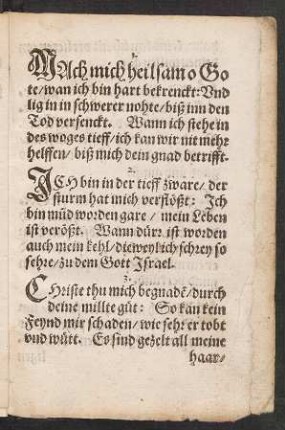 1.
MAch mich heilsam o Go
te/wan ich bin hart bekrenckt: Vnd
lig in in schwerer nohte/ biß inn den
Tod versenckt. Wann ich stehe in
des woges tieff/ich kan wir nit mehr
helffen/ biß mich dein gnad betrifft.
2.
ICH bin in der tieff zware/ der
sturm hat mich verflößt: Ich
bin müd worden gare/ mein Leben
ist verößt. Wann dürr ist worden
auch mein kehl/ dieweylich schrey so
sehre/ zu dem Gott Israel.
3.
CHriste thu mich begnadẽ/durch
deine millte güt: So kan kein
Feynd mir schaden/ wie sehr er tobt
vnd wütt. Es sind gezelt all meine
haar/